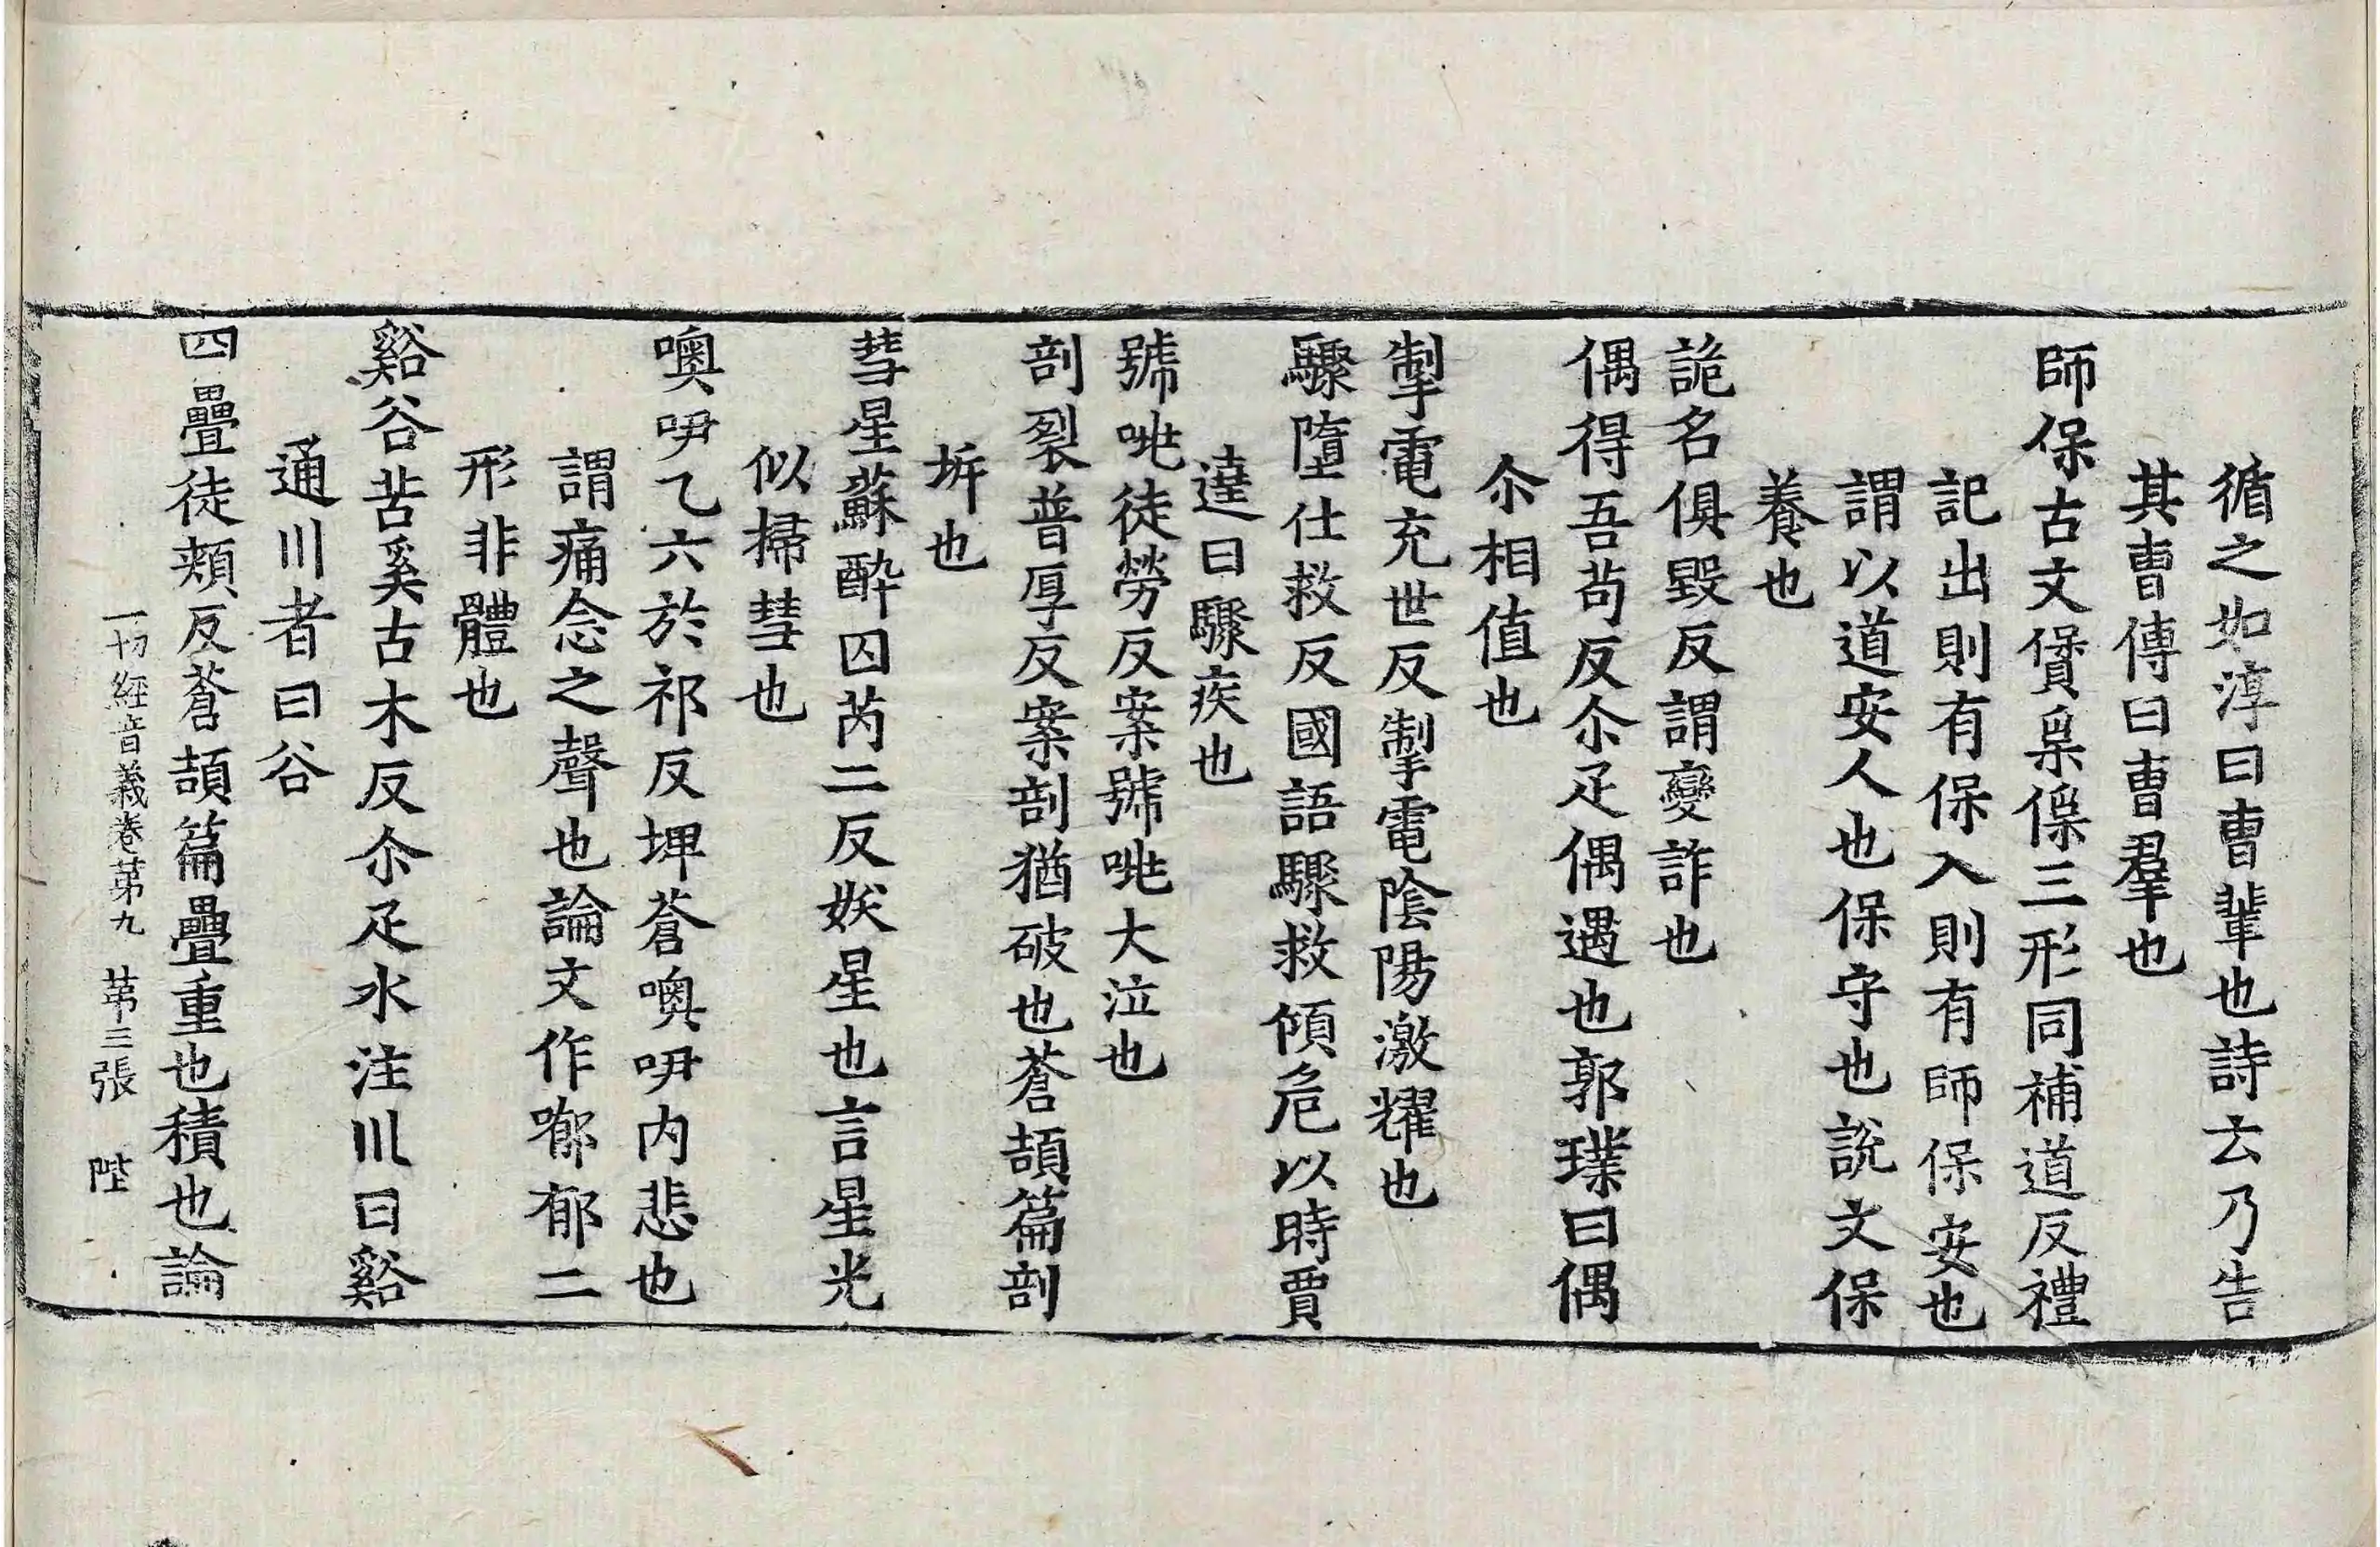 循之如淳曰曺輩也詩云乃告
其曺傳曰曺羣也
師保古文㻷𠈃保三形同補道反禮
記出則有保入則有師保安也
謂以道安人也保守也說文保
養也
詭名俱毀反謂變詐也
偶得吾苟反尒疋偶遇也郭璞曰偶
尒相值也
掣電充世反掣電陰陽激耀也
驟墮仕救反國語驟救傾危以時賈
逵曰驟疾也
號咷徒勞反案號咷大泣也
剖裂普厚反案剖猶破也蒼頡篇剖
坼也
彗星蘇醉囚芮二反妖星也言星光
似掃彗也
噢咿乙六於祁反埤蒼噢咿内悲也
謂痛念之聲也論文作噷郁二
形非體也
谿谷苦奚古木反尒疋水注川曰谿
通川者曰谷
四疊徒頰反蒼頡篇疊重也積也論
一切經音義卷苐九　苐三張　陛